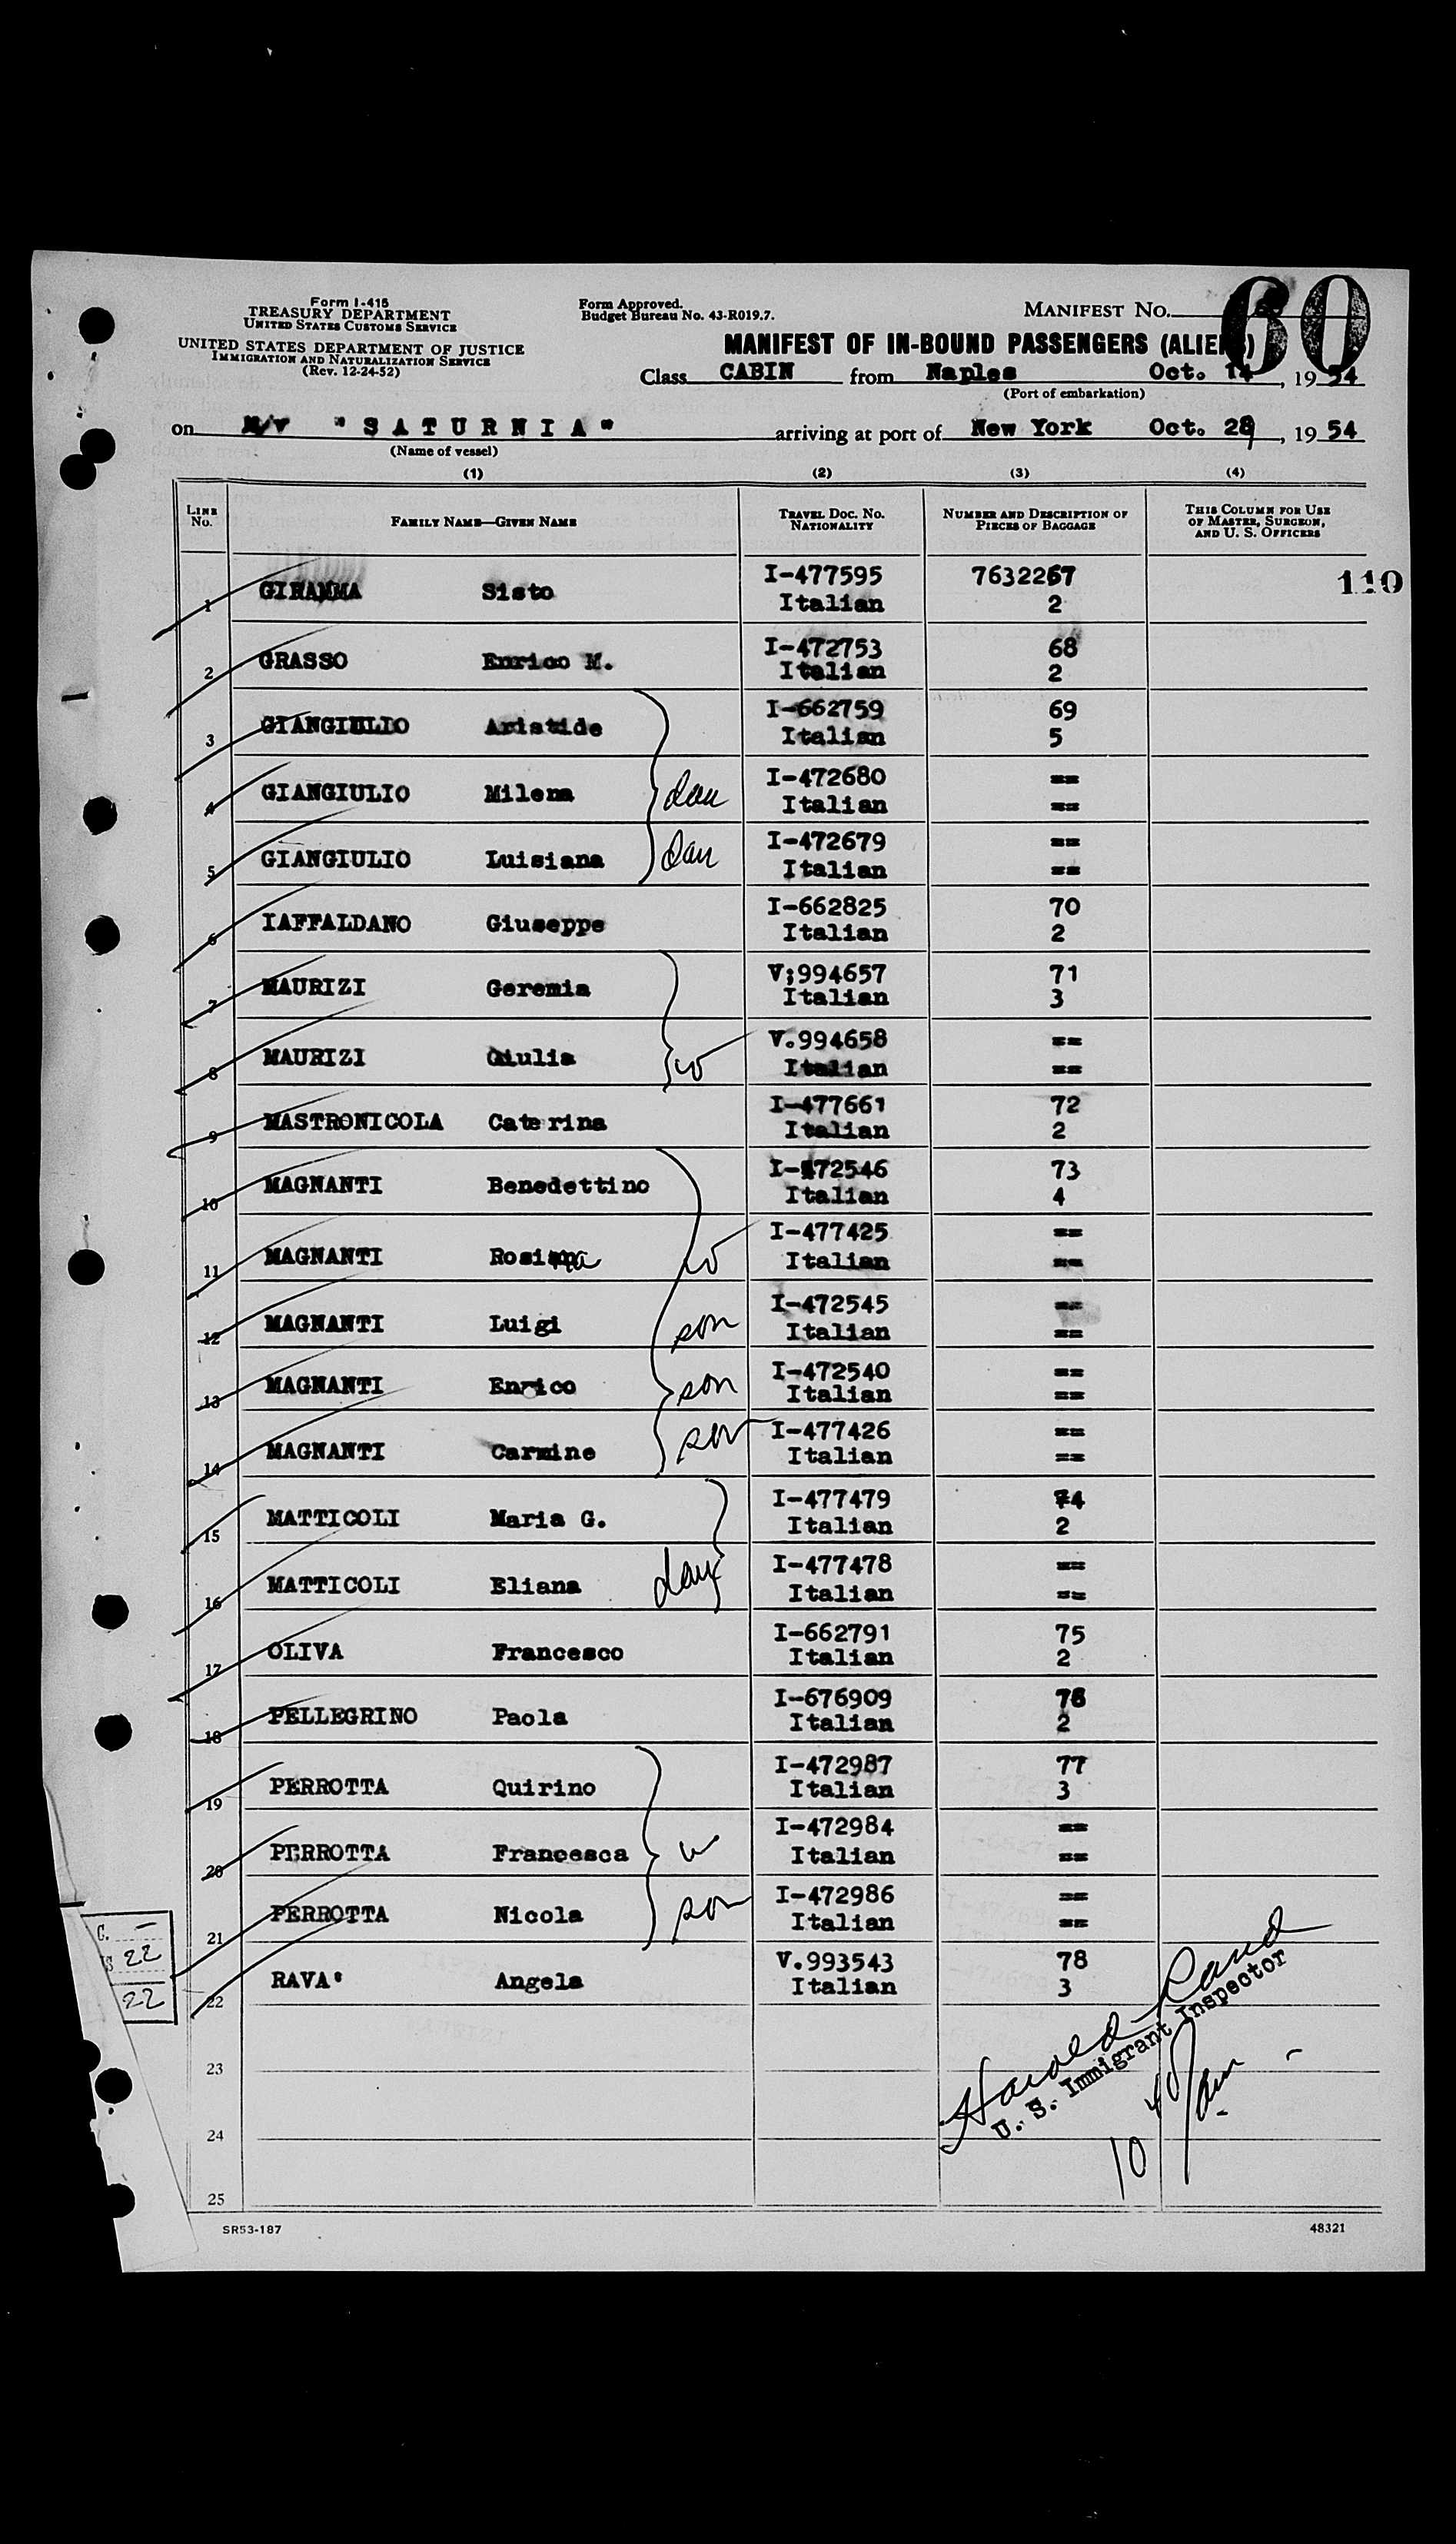 Form I-415
TREASURY DEPARTMENT
UNITED STATES CUSTOMS SERVICE
UNITED STATES DEPARTMENT OF JUSTICE
IMMIGRATION AND NATURALIZATION SERVICE
(Rev. 12-24-52)
Form Approved.
Budget Bureau No. 43-R019.7.
MANIFEST NO.
60
MANIFEST OF IN-BOUND PASSENGERS (ALIENS)
Class CABIN from Naples Oct. 14, 1954
(Port of embarkation)
on M/V "SATURNIA" arriving at port of New York Oct. 29, 1954
(Name of vessel)
(1) (2) (3) (4)
LINE No. FAMILY NAME—GIVEN NAME TRAVEL DOC. NO. NATIONALITY NUMBER AND DESCRIPTION OF PIECES OF BAGGAGE THIS COLUMN FOR USE OF MASTER, SURGEON, AND U. S. OFFICERS
110
1 Sisto I-477595 Italian 7632267 2
2 GRASSO Enrico M. I-472753 Italian 68 2
3 GIANGIULIO Aristide I-662759 Italian 69 5
4 GIANGIULIO Milena dau I-472680 Italian == ==
5 GIANGIULIO Luisiana dau I-472679 Italian == ==
6 IAFFALDANO Giuseppe I-662825 Italian 70 2
7 MAURIZI Geremia V;994657 Italian 71 3
8 MAURIZI Giulia w V.994658 Italian == ==
9 MASTRONICOLA Caterina I-477661 Italian 72 2
10 MAGNANTI Benedettino I-472546 Italian 73 4
11 MAGNANTI w I-477425 Italian == ==
12 MAGNANTI Luigi son I-472545 Italian == ==
13 MAGNANTI Enrico son I-472540 Italian == ==
14 MAGNANTI Carmine son I-477426 Italian == ==
15 MATTICOLI Maria G. I-477479 Italian 74 2
16 MATTICOLI Eliana dau I-477478 Italian == ==
17 OLIVA Francesco I-662791 Italian 75 2
18 PELLEGRINO Paola I-676909 Italian 76 2
19 PERROTTA Quirino I-472987 Italian 77 3
20 PERROTTA Francesca w I-472984 Italian == ==
21 PERROTTA Nicola son I-472986 Italian == ==
22 RAVA' Angela V.993543 Italian 78 3
23
24
25
C. —
S 22
22
Harold
U. S. Immigrant Inspector
10 40 am
SR53-187
48321